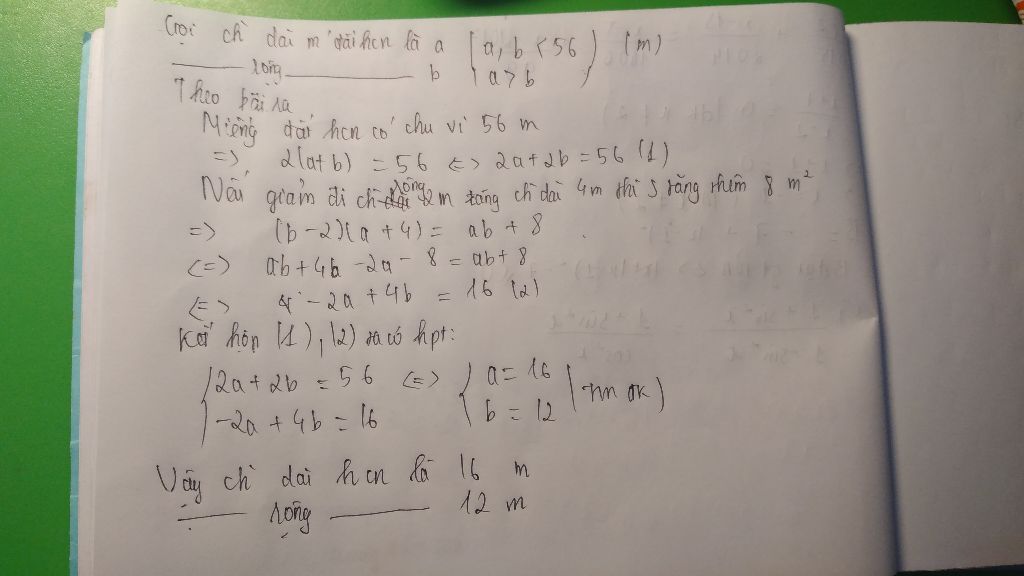 Gọi chì dài m' đất hcn là a { a, b < 56 (m)
____ rộng ____ b a > b
Theo bài ra
Miếng đất hcn có chu vi 56 m
=> 2(a+b) = 56 <=> 2a+2b = 56 (1)
Nếu giảm đi ch rộng 2m tăng ch dài 4m thì S tăng thêm 8 m²
=> (b-2)(a+4) = ab + 8
<=> ab+4b-2a-8 = ab+8
<=> -2a+4b = 16 (2)
Kết hợp (1), (2) ta có hpt:
{ 2a+2b = 56 <=> { a = 16 (tm đk)
-2a+4b = 16 b = 12
Vậy chì dài hcn là 16 m
____ rộng ____ 12 m